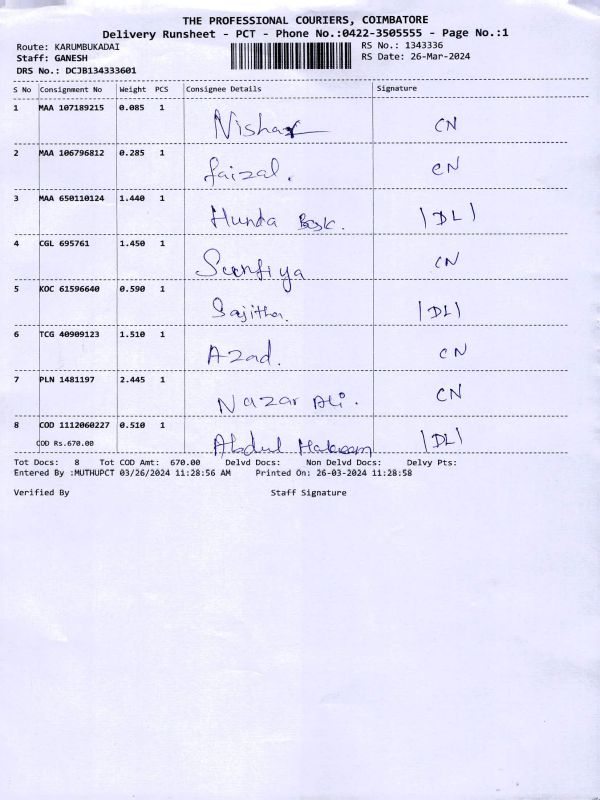 THE PROFESSIONAL COURIERS, COIMBATORE
Delivery Runsheet - PCT - Phone No.:0422-3505555 - Page No.:1
Route: KARUMBUKADAI RS No.: 1343336
Staff: GANESH RS Date: 26-Mar-2024
DRS No.: DCJB134333601
S No Consignment No Weight PCS Consignee Details Signature
1 MAA 107189215 0.085 1 Nishar CN
2 MAA 106796812 0.285 1 faizal. CN
3 MAA 650110124 1.440 1 Hunda |DL|
4 CGL 695761 1.450 1 CN
5 KOC 61596640 0.590 1 Sajitha. |DL|
6 TCG 40909123 1.510 1 Azad. CN
7 PLN 1481197 2.445 1 Nazar Ali. CN
8 COD 1112060227 0.510 1 Abdul Hakeem |DL|
COD Rs.670.00
Tot Docs: 8 Tot COD Amt: 670.00 Delvd Docs: Non Delvd Docs: Delvy Pts:
Entered By :MUTHUPCT 03/26/2024 11:28:56 AM Printed On: 26-03-2024 11:28:58
Verified By Staff Signature